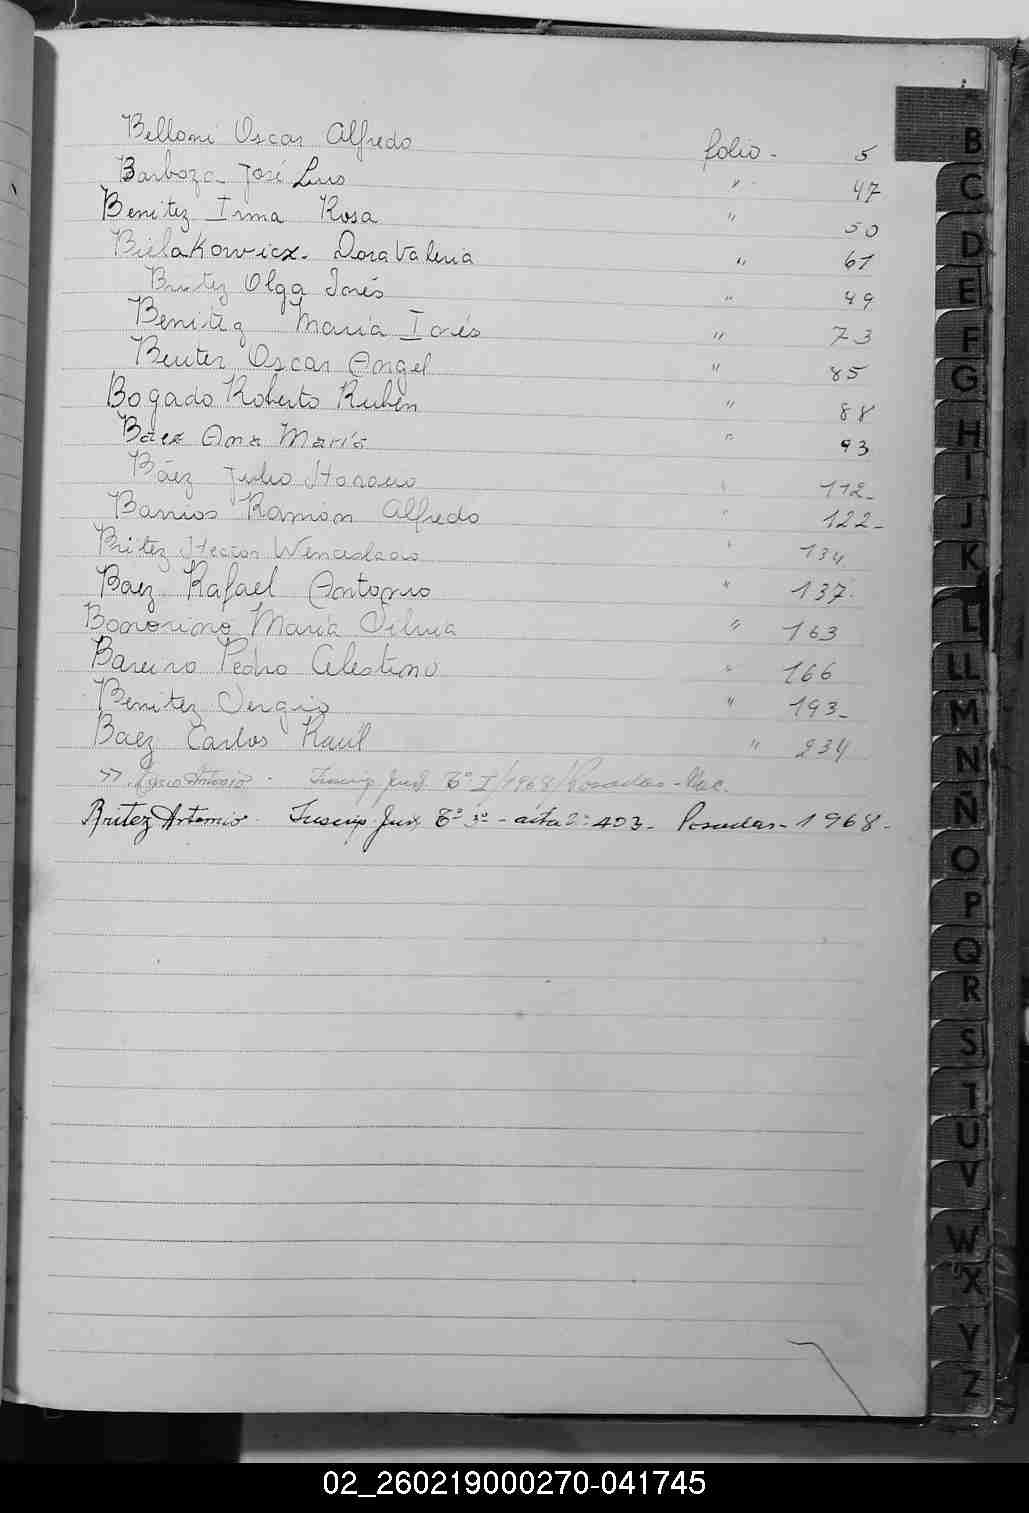 Belloni Oscar Alfredo folio - 5
Barboza José Luis " 47
Benitez Irma Rosa " 50
Bielakowicz. Dora Valeria " 61
Britez Olga Inés " 49
Benitez María Inés " 73
Beuter Oscar Angel " 85
Bogado Roberto Rubén " 88
Báez Ana María " 93
Báez Julio Horacio " 112-
Barrios Ramón Alfredo " 122-
Britez Hector Wenceslao " 134
Baez Rafael Antonio " 137
Bonorino María Silvia " 163
Bareiro Pedro Celestino " 166
Benitez Sergio " 193-
Baez Carlos Raul " 234
Antonio - Inscrip Jud. Tº I/1968/Posadas - Nac.
Britez Artemio - Inscrip. Jud. Tº 3º - acta 2º 403 - Posadas - 1968 -
B
C
D
E
F
G
H
I
J
K
L
LL
M
N
Ñ
O
P
Q
R
S
T
U
V
W
X
Y
Z
02_260219000270-041745